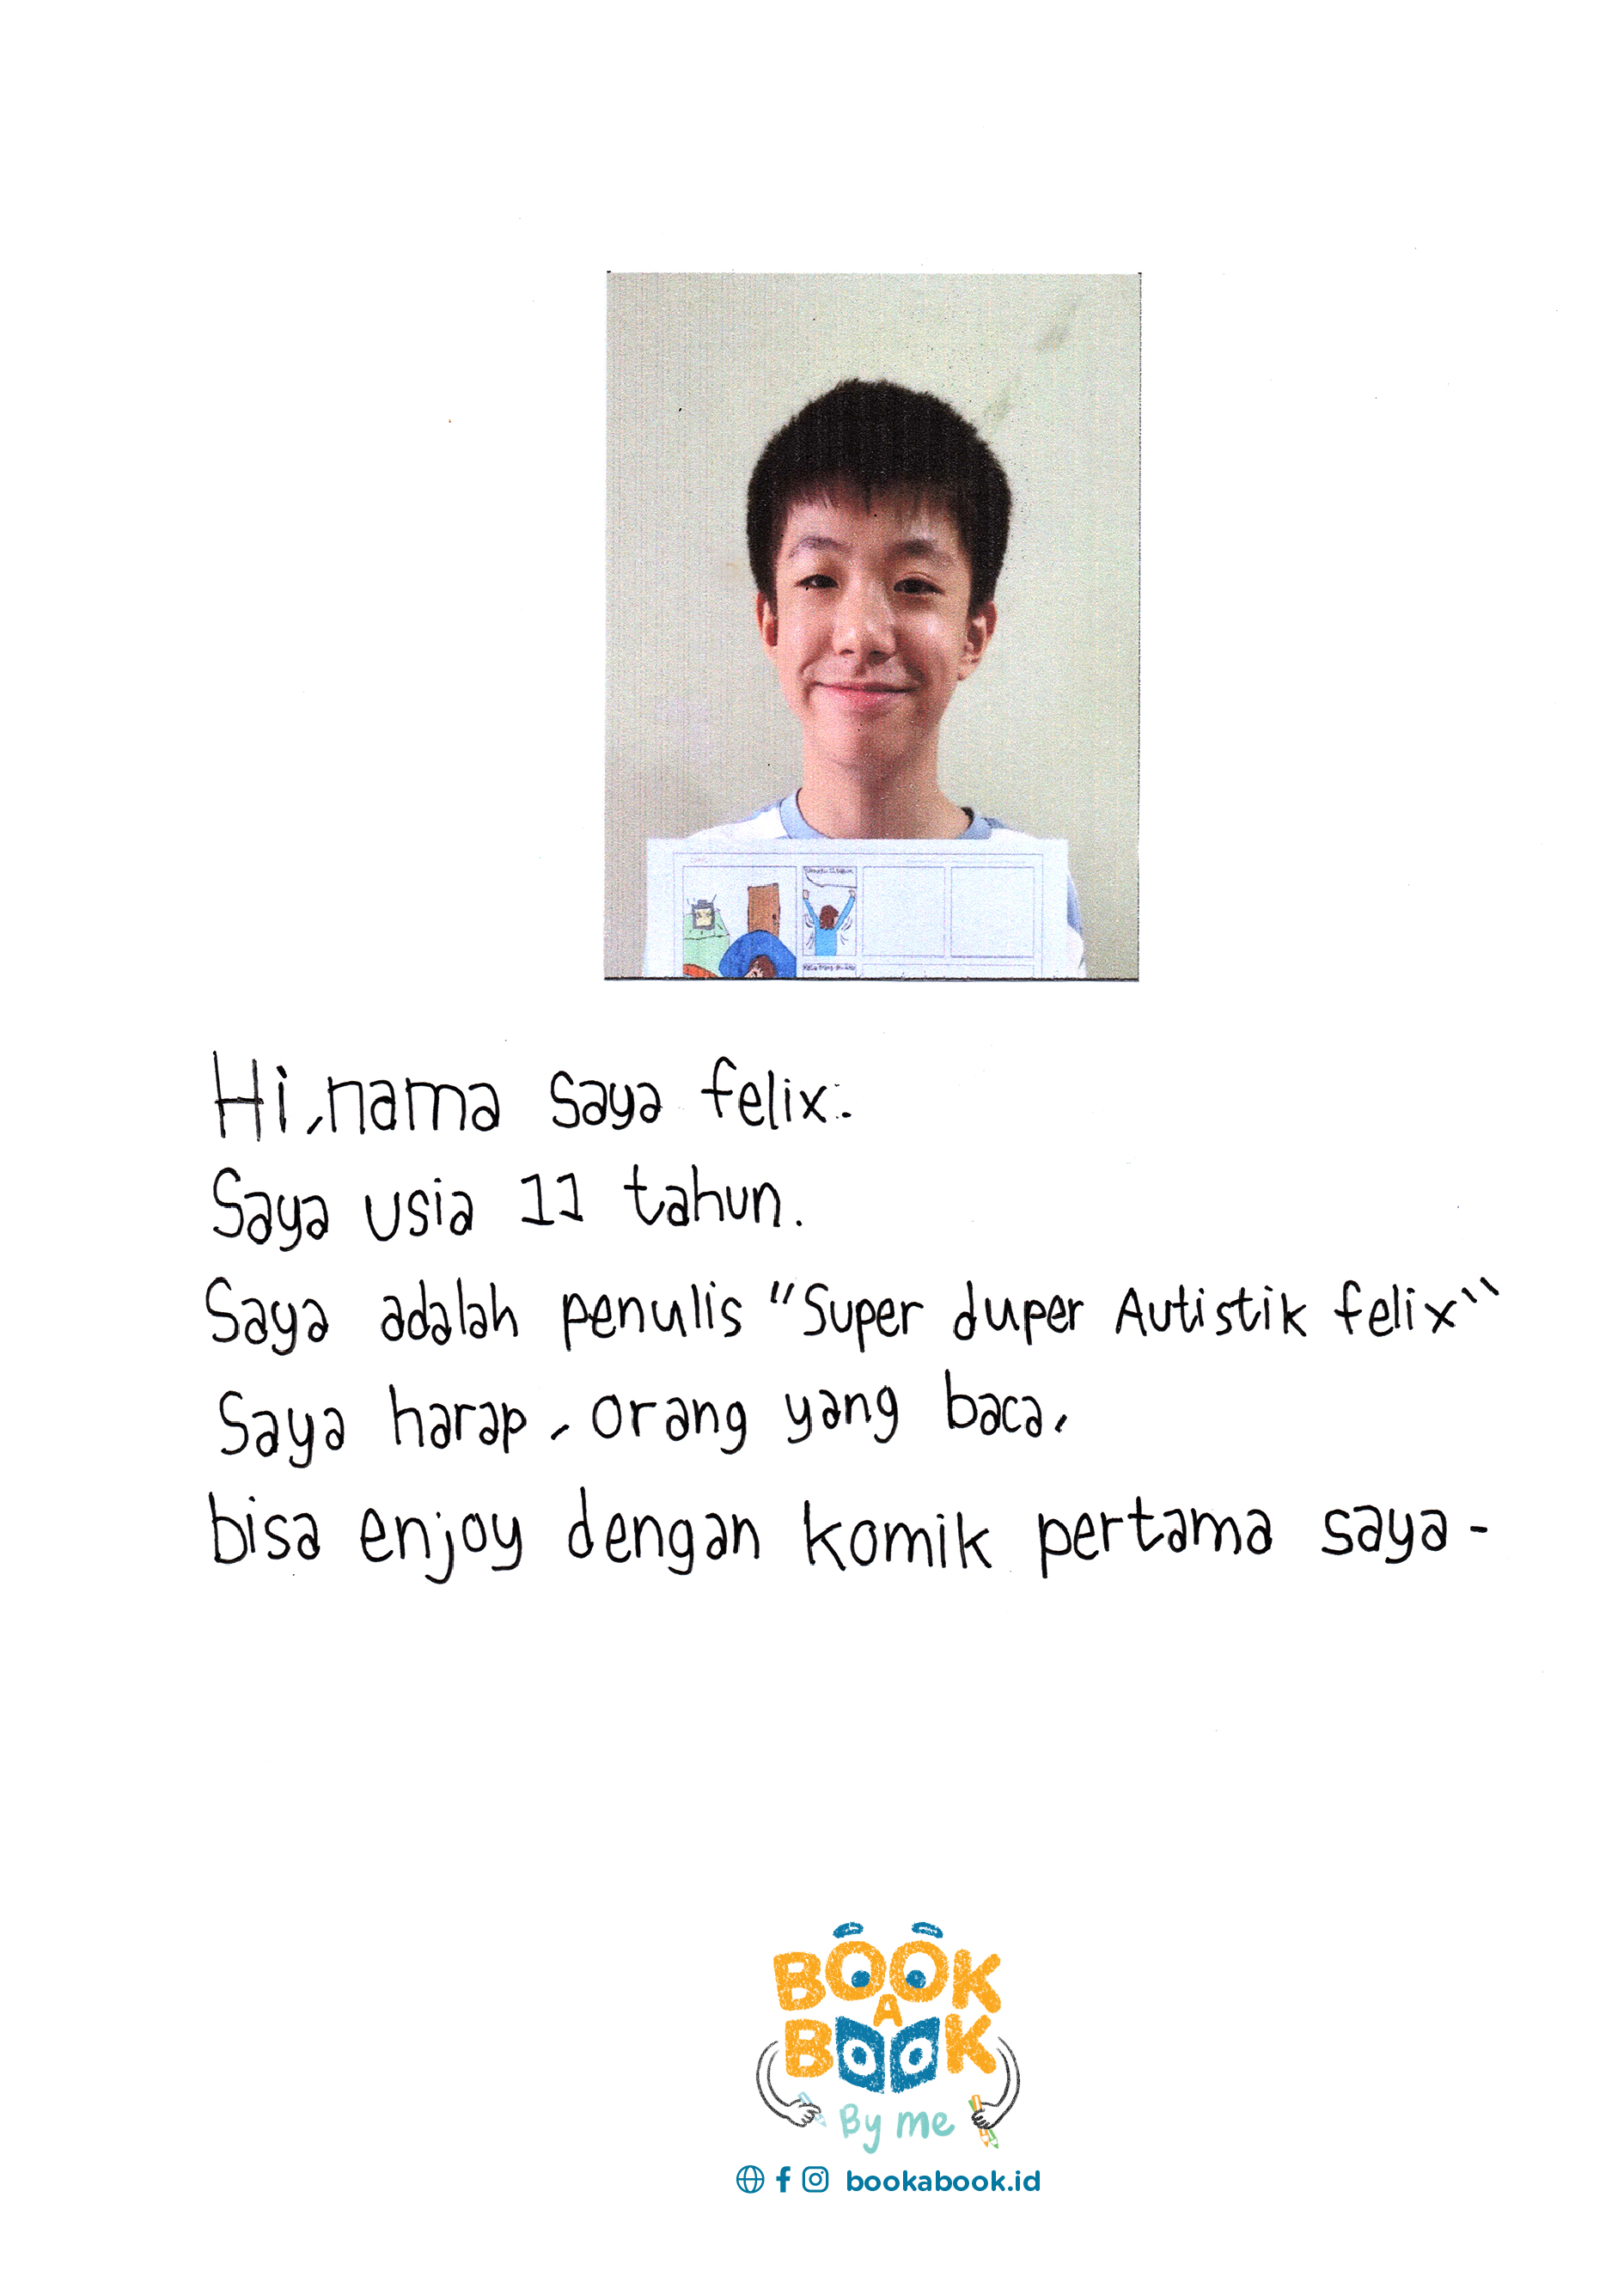 Hi, nama saya felix.
Saya usia 11 tahun.
Saya adalah penulis "Super duper Autistik felix"
Saya harap, orang yang baca,
bisa enjoy dengan komik pertama saya-
BOOK
A
BOOK
By me
bookabook.id